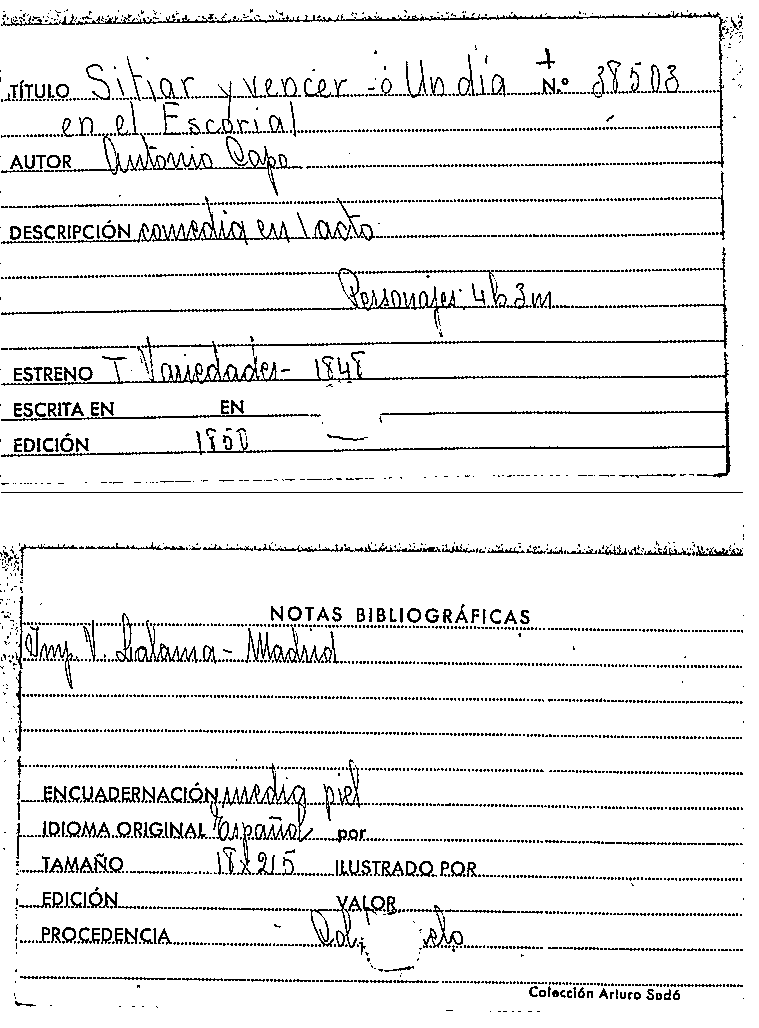 TÍTULO Sitiar y vencer -ó Un día N.º 38503
en el Escorial
AUTOR Antonio Capo
DESCRIPCIÓN comedia en 1 acto
Personajes: 4h 3m
ESTRENO T. Variedades- 1848
ESCRITA EN EN
EDICIÓN 1850
NOTAS BIBLIOGRÁFICAS
Imp. V. Lalama - Madrid
ENCUADERNACIÓN media piel
IDIOMA ORIGINAL Español por
TAMAÑO 18x215 ILUSTRADO POR
EDICIÓN VALOR
PROCEDENCIA Col.
Colección Arturo Sedó